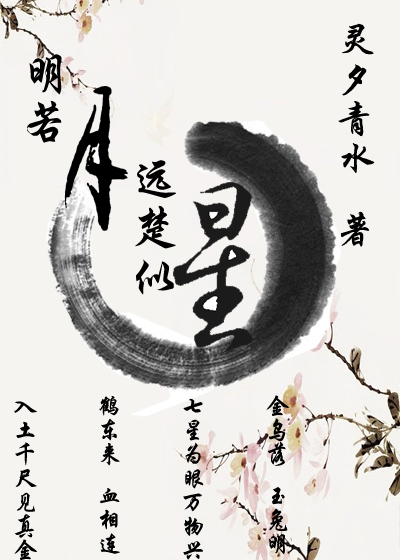 明若
月
远楚似
星
灵夕青水 著
金乌落 玉兔明
七星为眼万物兴
鹤东来 血相连
入土千尺见真金